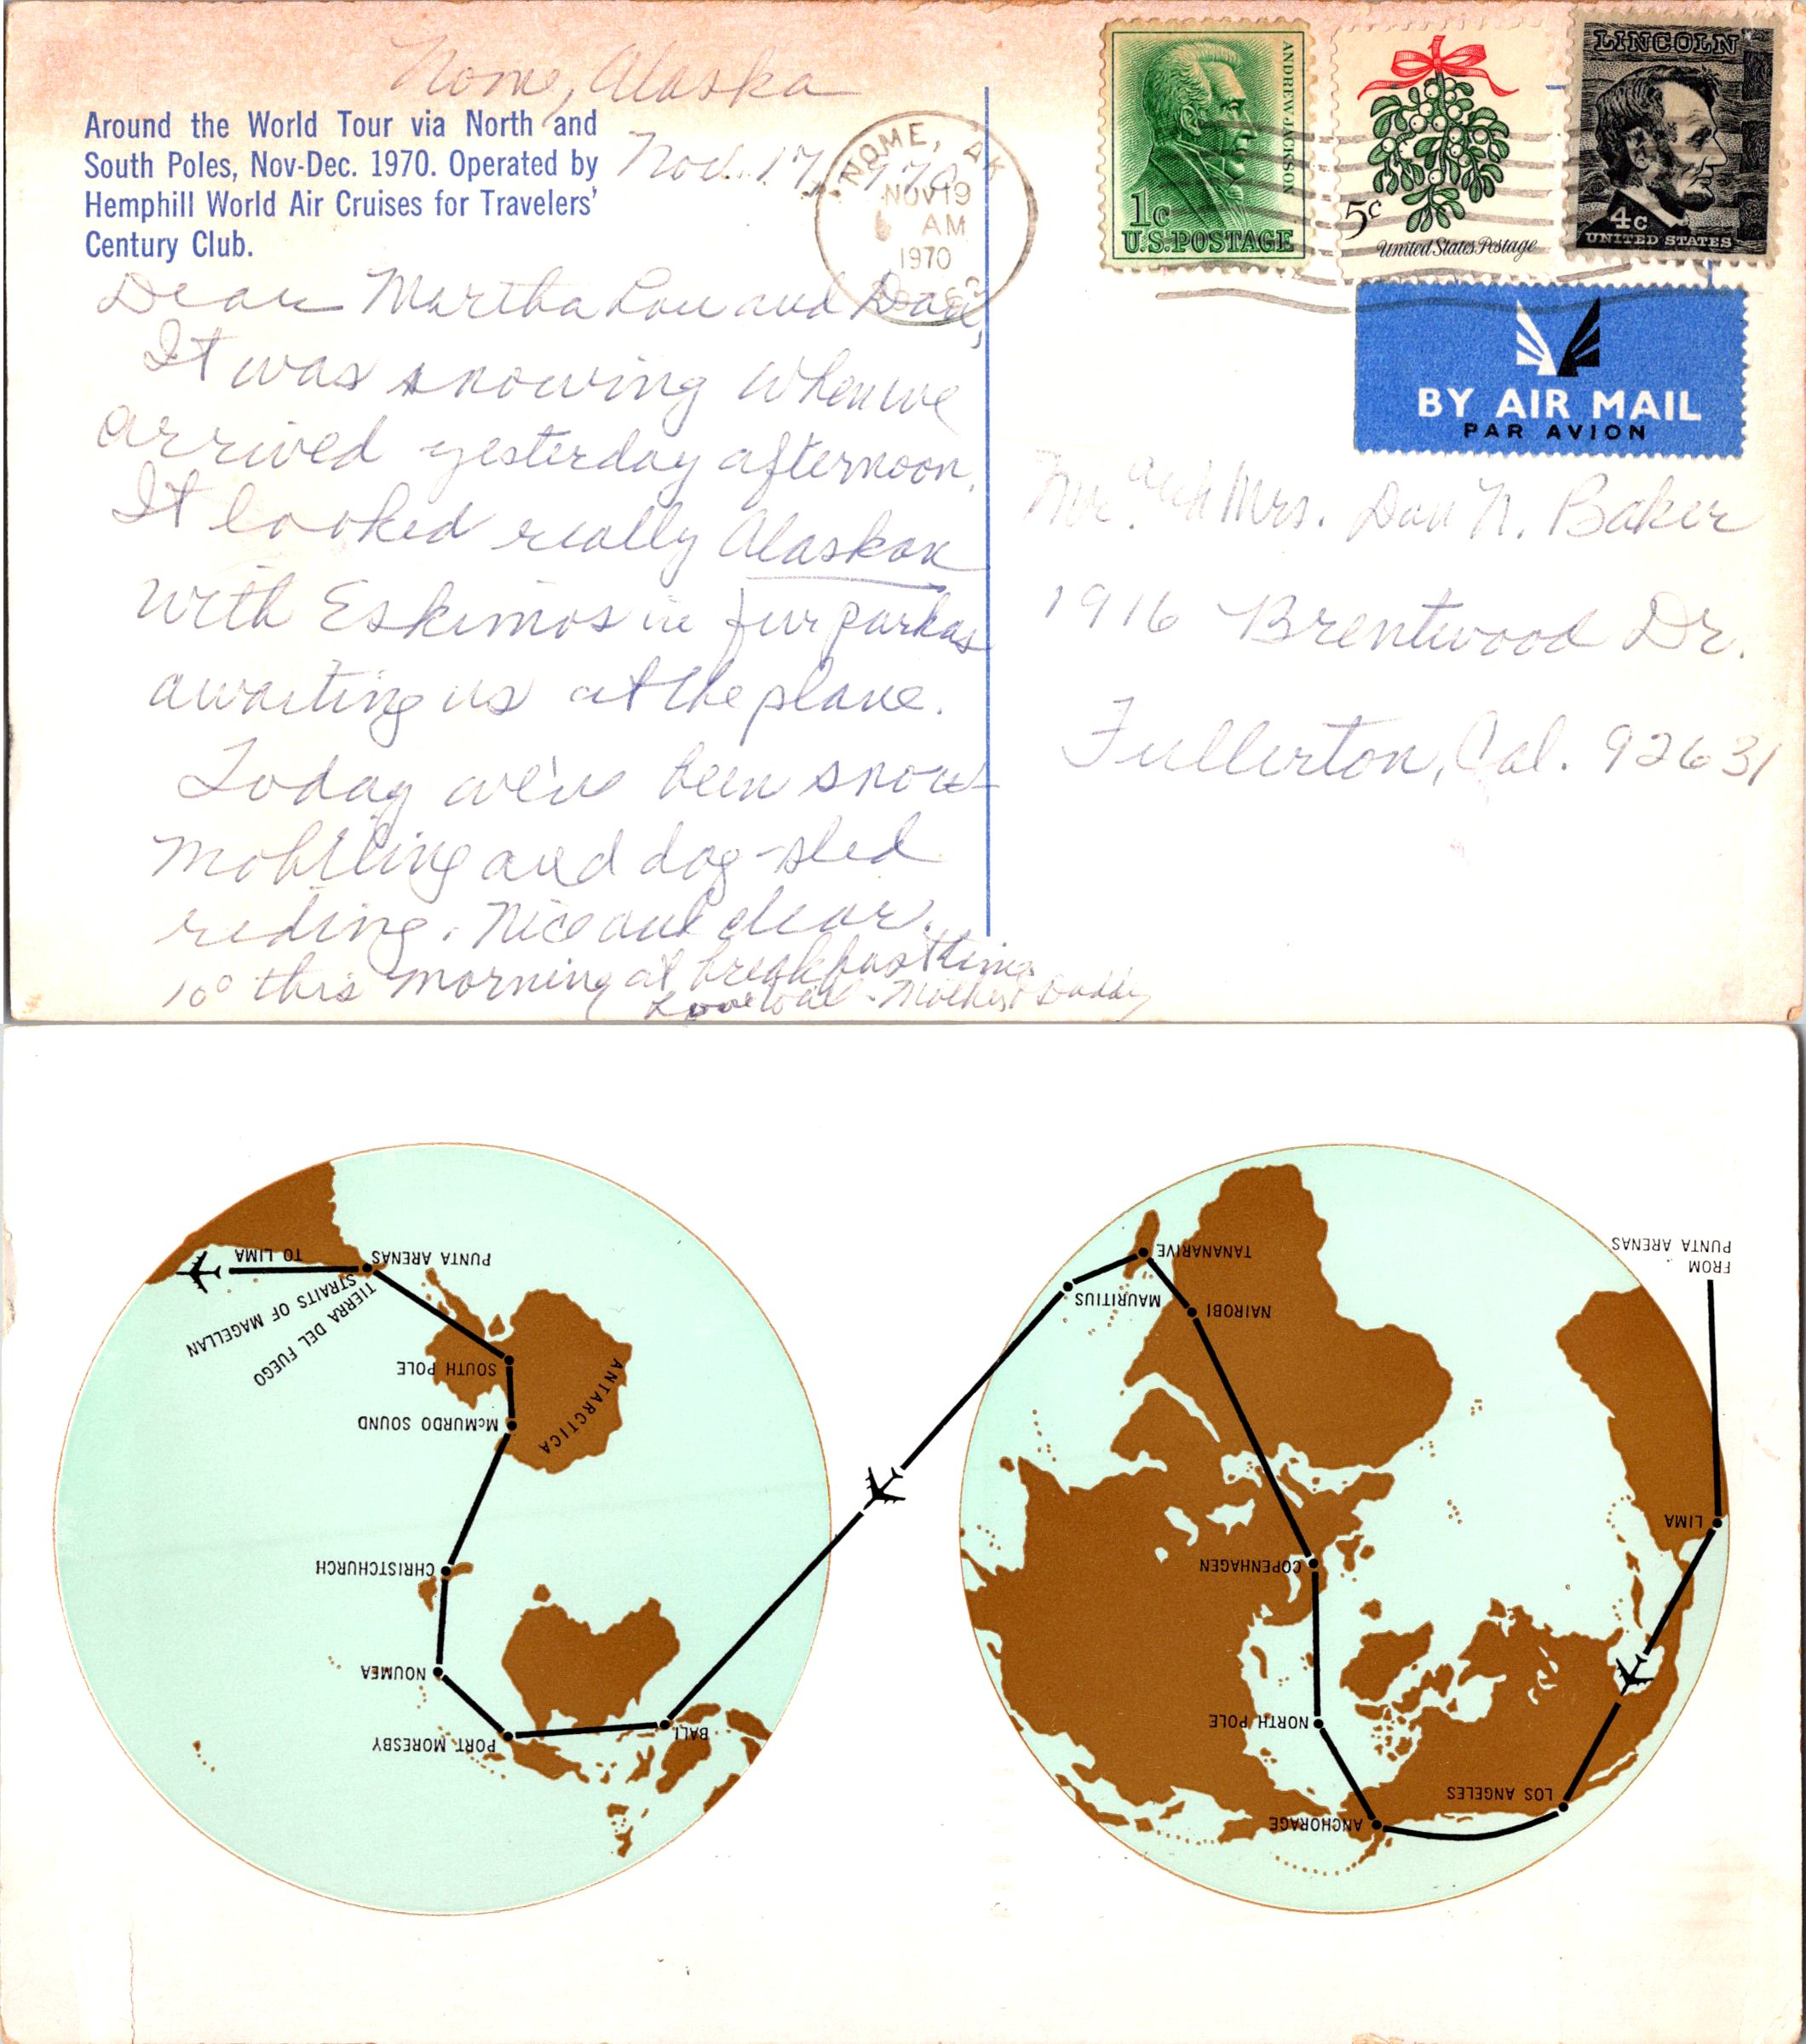 Nome, Alaska
Nov. 17, 1970
Around the World Tour via North and
South Poles, Nov-Dec. 1970. Operated by
Hemphill World Air Cruises for Travelers'
Century Club.
Dear Martha Lou and Dan,
It was snowing when we
arrived yesterday afternoon.
It looked really Alaskan
with Eskimos in fur parkas
awaiting us at the plane.
Today we've been snow-
mobiling and dog-sled
riding. Nice and clear.
10° this morning at breakfast time
Love to all - Mother & Daddy
NOME, AK
NOV 19
AM
1970
ANDREW JACKSON
1c
U.S. POSTAGE
5c
United States Postage
LINCOLN
4c
UNITED STATES
BY AIR MAIL
PAR AVION
Mr. and Mrs. Dan N. Baker
1916 Brentwood Dr.
Fullerton, Cal. 92631
TO LIMA
PUNTA ARENAS
STRAITS OF MAGELLAN
TIERRA DEL FUEGO
SOUTH POLE
McMURDO SOUND
ANTARCTICA
CHRISTCHURCH
NOUMEA
PORT MORESBY
BALI
TANANARIVE
MAURITIUS
NAIROBI
COPENHAGEN
NORTH POLE
ANCHORAGE
LOS ANGELES
LIMA
FROM
PUNTA ARENAS